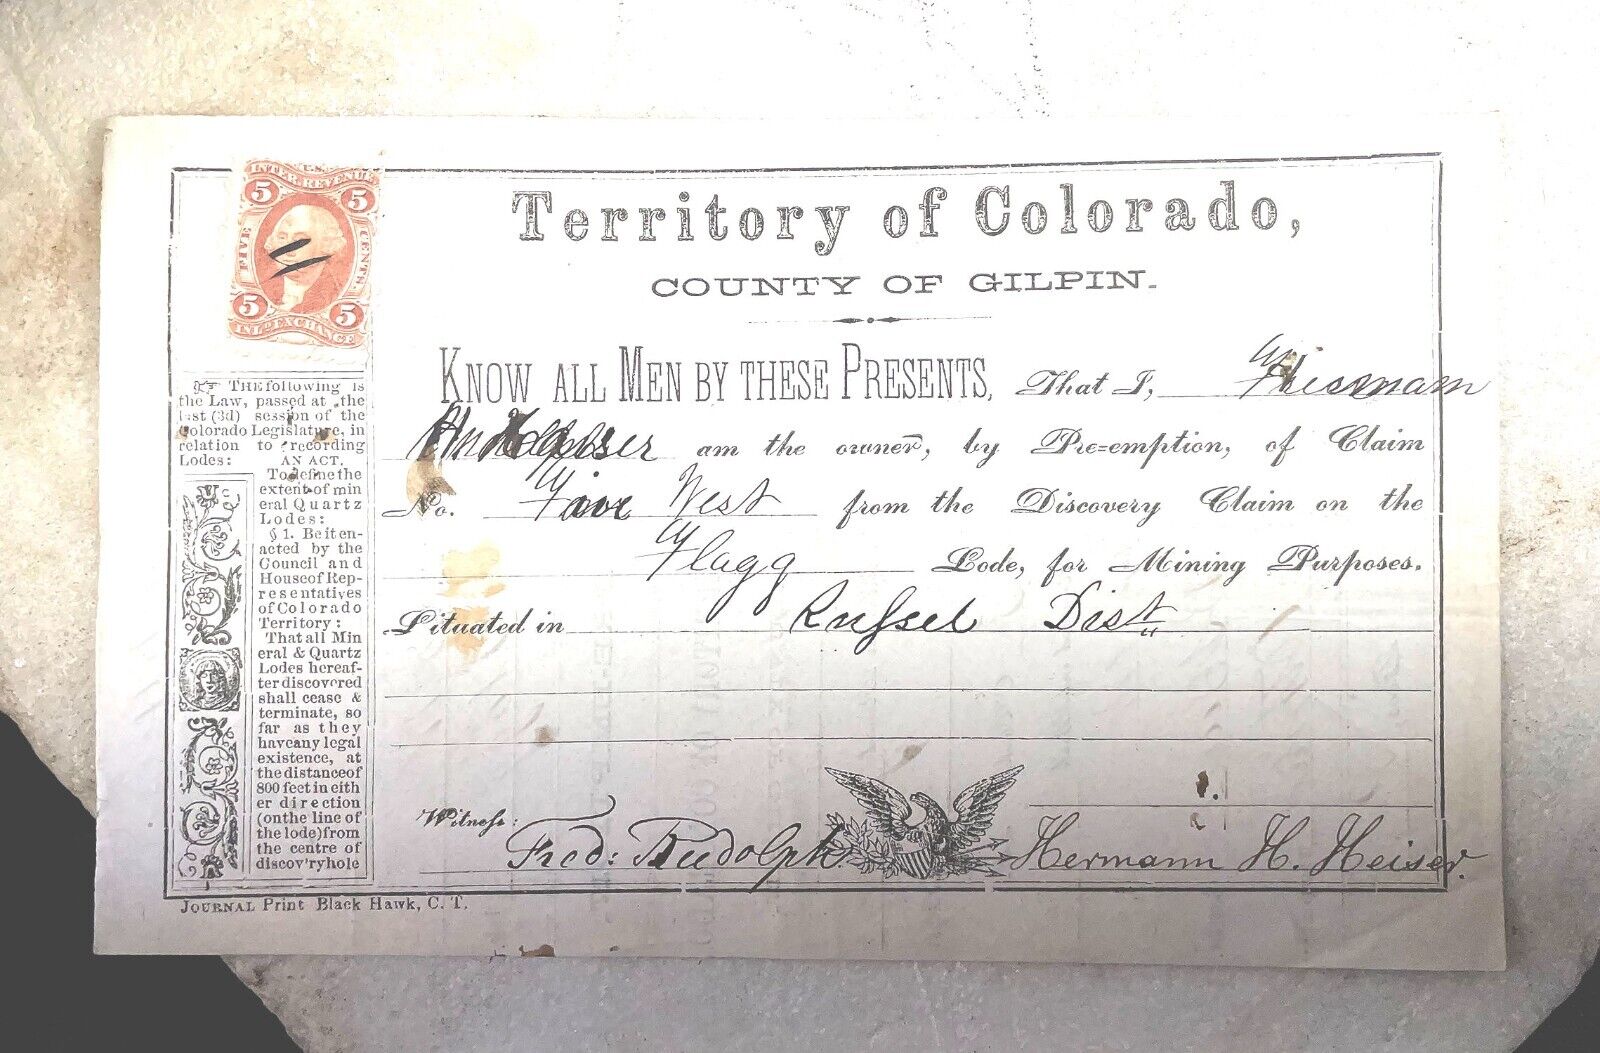 U.S.
INTER. REVENUE
5 5
FIVE CENTS.
5 5
INL'D EXCHANGE
Territory of Colorado,
COUNTY OF GILPIN.
KNOW ALL MEN BY THESE PRESENTS, That I,
am the owner, by Pre=emption, of Claim
No. West from the Discovery Claim on the
Flagg Lode, for Mining Purposes.
Situated in Russel Dist
Witness:
Fred: Rudolph Hermann H. Heiser.
☞ THE following is
the Law, passed at the
last (3d) session of the
Colorado Legislature, in
relation to recording
Lodes: AN ACT.
To define the
extent of min
eral Quartz
Lodes:
§ 1. Be it en-
acted by the
Council and
House of Rep-
resentatives
of Colorado
Territory:
That all Min
eral & Quartz
Lodes hereaf-
ter discovered
shall cease &
terminate, so
far as they
have any legal
existence, at
the distance of
800 feet in eith
er direction
(on the line of
the lode) from
the centre of
discov'ry hole
JOURNAL Print Black Hawk, C. T.